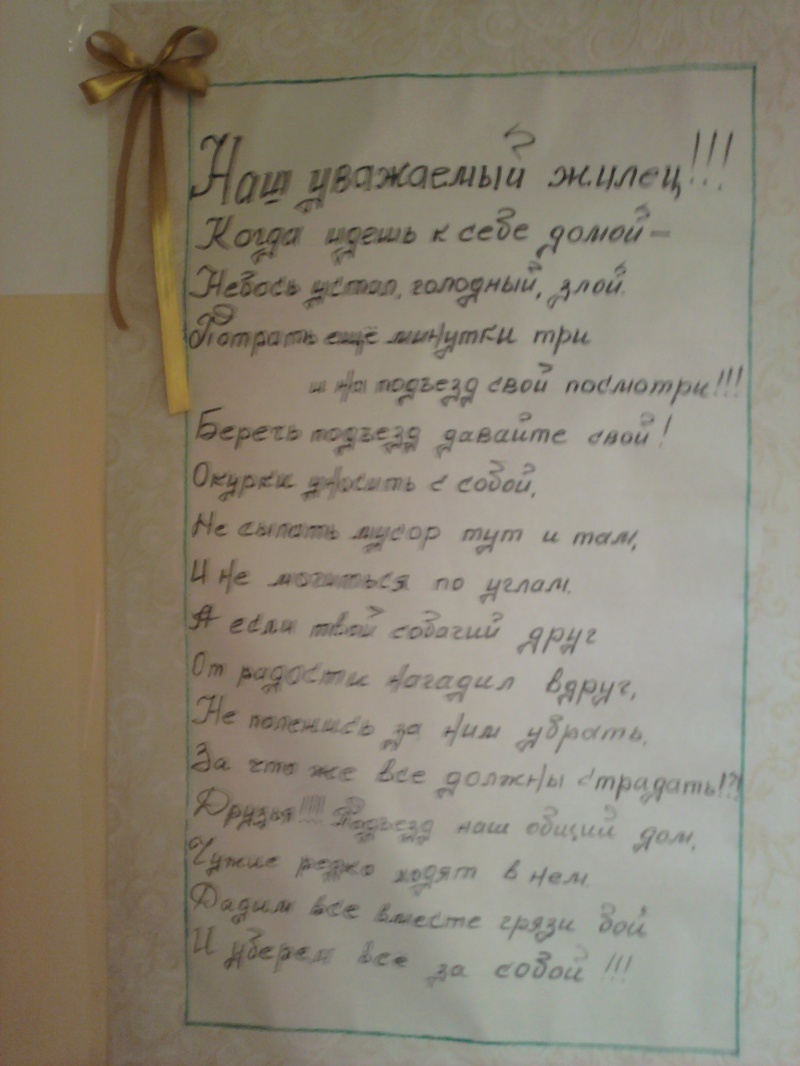 Наш уважаемый жилец!!!
Когда идешь к себе домой –
Небось устал, голодный, злой.
Потрать ещё минутки три
и на подъезд свой посмотри!!!
Беречь подъезд давайте свой!
Окурки уносить с собой,
Не сыпать мусор тут и там,
И не мочиться по углам.
А если твой собачий друг
От радости нагадил вдруг,
Не поленись за ним убрать.
За что же все должны страдать!?!
Друзья!!! Подъезд наш общий дом,
Чужие редко ходят в нем.
Дадим все вместе грязи бой
И уберем все за собой!!!